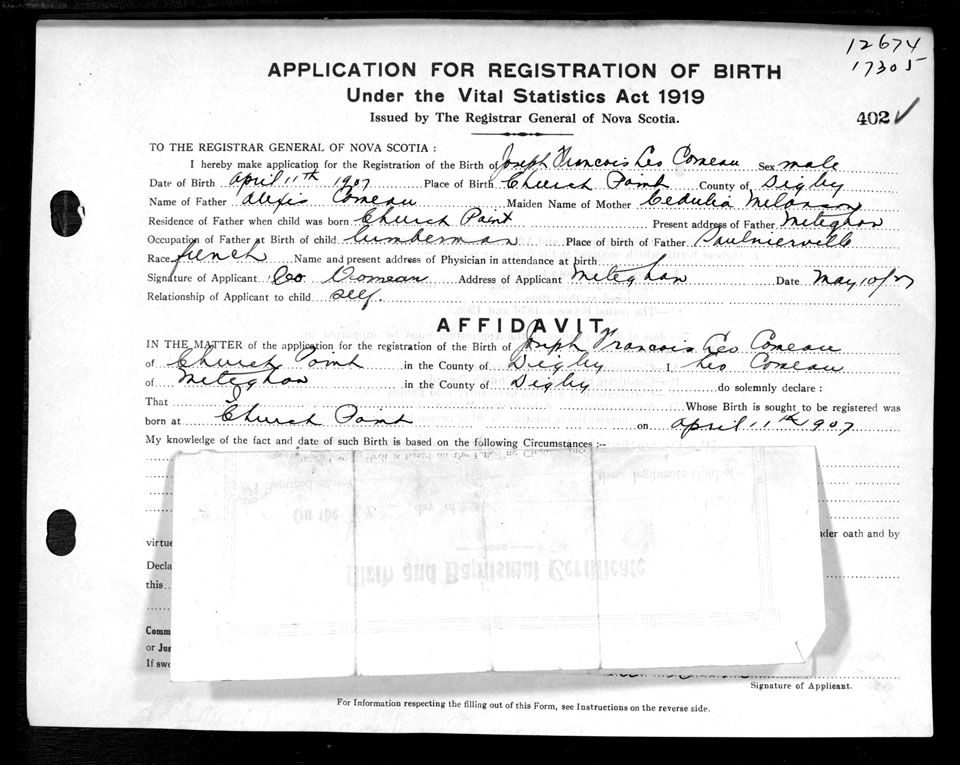 12674
17305
APPLICATION FOR REGISTRATION OF BIRTH
Under the Vital Statistics Act 1919
Issued by The Registrar General of Nova Scotia.
402
TO THE REGISTRAR GENERAL OF NOVA SCOTIA :
I hereby make application for the Registration of the Birth of Joseph Francois Leo Comeau Sex male
Date of Birth April 11th 1907 Place of Birth Church Point County of Digby
Name of Father Alexis Comeau Maiden Name of Mother Cedulia Melanson
Residence of Father when child was born Church Point Present address of Father Meteghan
Occupation of Father at Birth of child lumberman Place of birth of Father Saulnierville
Race french Name and present address of Physician in attendance at birth
Signature of Applicant Leo Comeau Address of Applicant Meteghan Date May 10/27
Relationship of Applicant to child self.
AFFIDAVIT
IN THE MATTER of the application for the registration of the Birth of Joseph Francois Leo Comeau
of Church Point in the County of Digby I Leo Comeau
of Meteghan in the County of Digby do solemnly declare :
That I Whose Birth is sought to be registered was
born at Church Point on April 11th 1907
My knowledge of the fact and date of such Birth is based on the following Circumstances :--
On the day of
virtue oath and by
Birth and Baptismal Certificate
this
Comm
or Jus
If swo
Signature of Applicant.
For Information respecting the filling out of this Form, see Instructions on the reverse side.